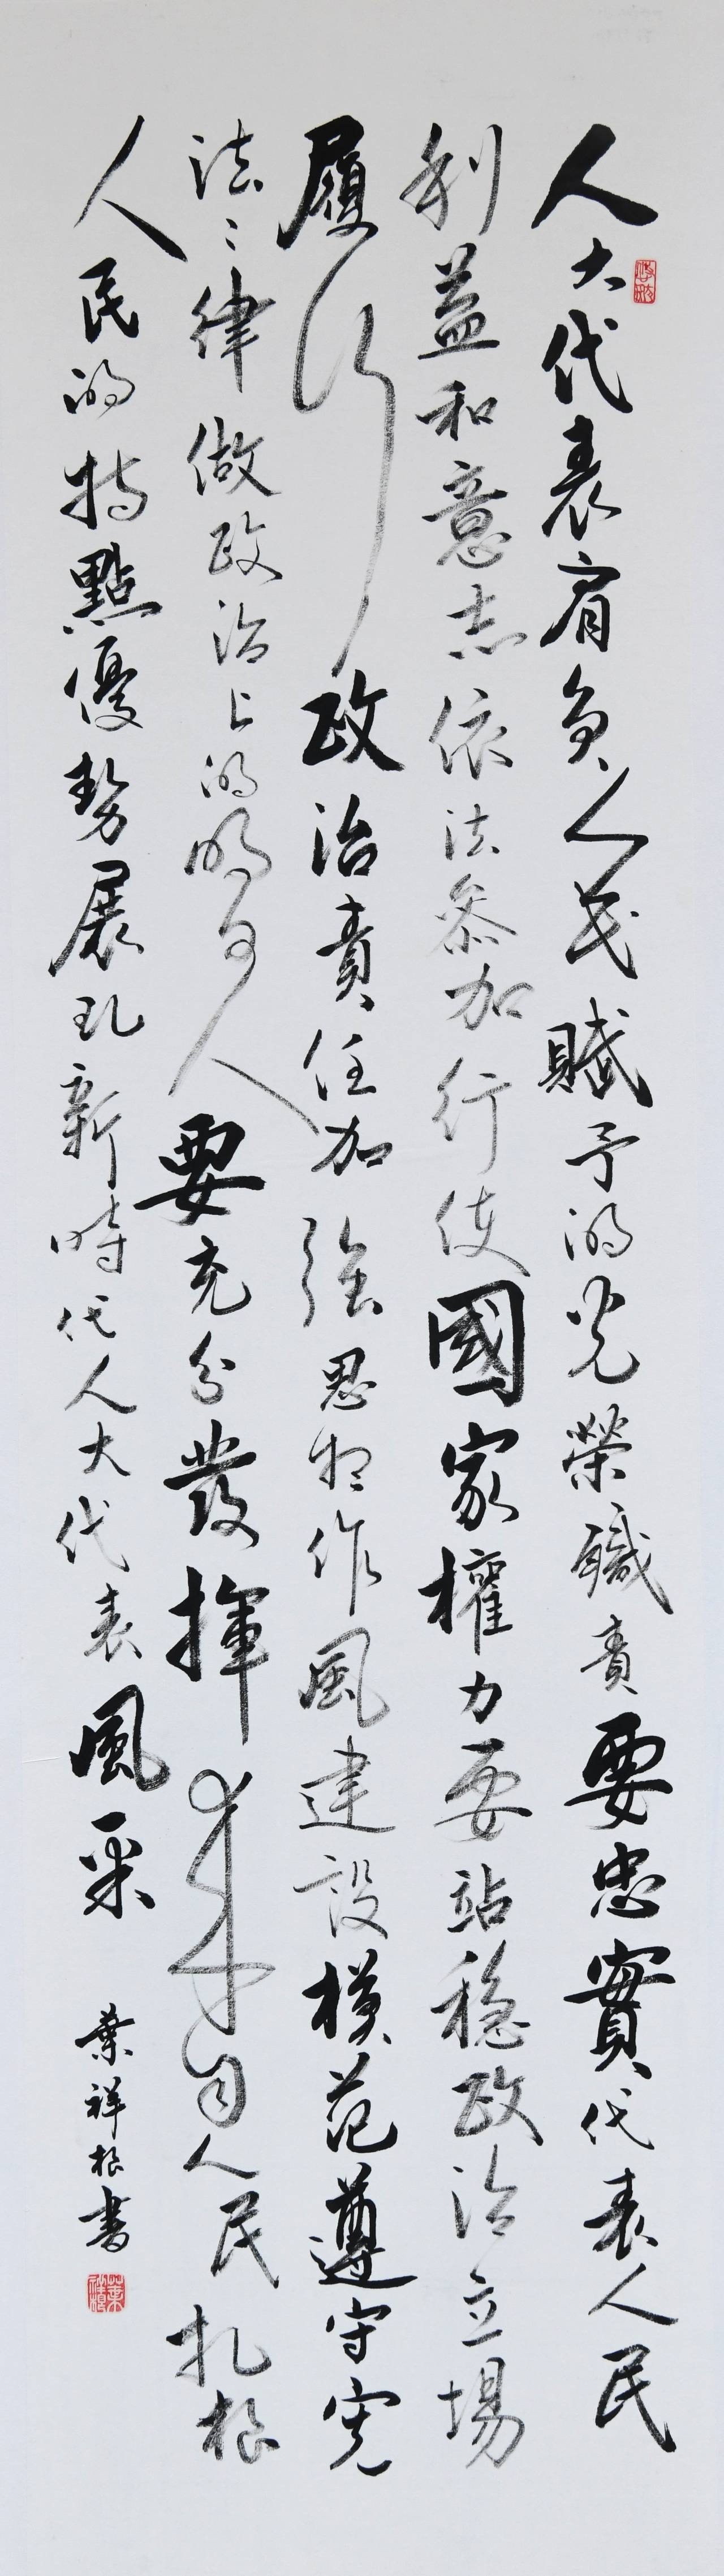 人大代表肩負人民賦予的光榮職責要忠實代表人民
利益和意志依法參加行使國家權力要站穩政治立場
履行政治責任加強思想作風建設模范遵守憲
法〻律做政治上的明白人要充分發揮來自人民扎根
人民的特點優勢展現新時代人大代表風采
葉祥根書
葉祥根